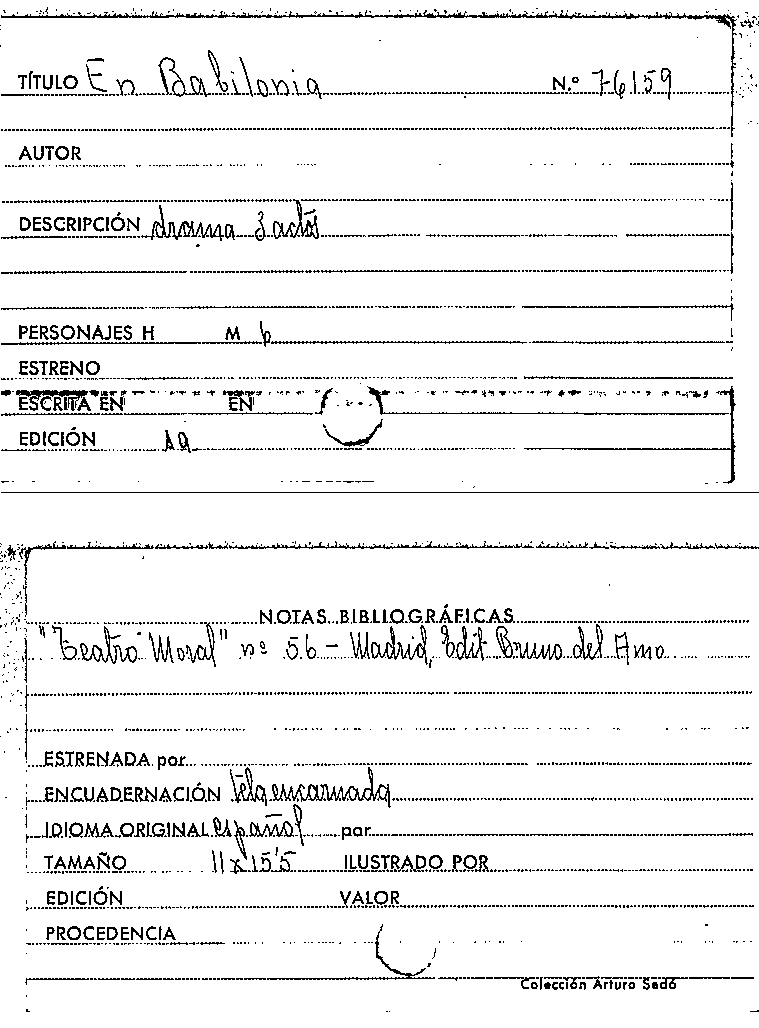 TÍTULO En Babilonia N.º 76159
AUTOR
DESCRIPCIÓN drama 3 actos
PERSONAJES H M 6
ESTRENO
ESCRITA EN EN
EDICIÓN 1ª
NOTAS BIBLIOGRÁFICAS
"Teatro Moral" nº 56 - Madrid, Edit. Bruno del Amo
ESTRENADA por
ENCUADERNACIÓN tela encarnada
IDIOMA ORIGINAL español por
TAMAÑO 11 x 15'5 ILUSTRADO POR
EDICIÓN VALOR
PROCEDENCIA
Colección Arturo Sedó